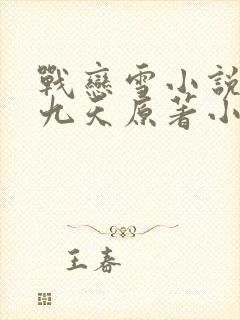 戰戀雪小說
九天原著小
王春